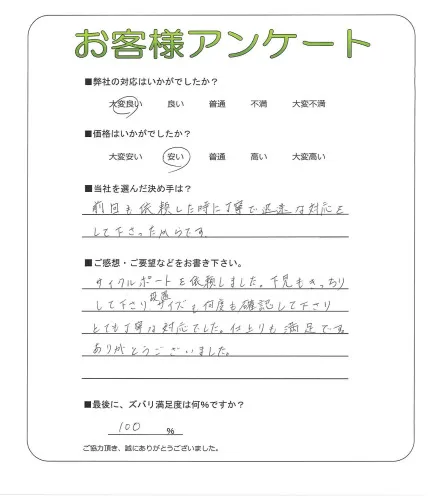 お客様アンケート
■弊社の対応はいかがでしたか？
大変良い 良い 普通 不満 大変不満
■価格はいかがでしたか？
大変安い 安い 普通 高い 大変高い
■当社を選んだ決め手は？
前回も依頼した時に丁寧で迅速な対応を
して下さったからです。
■ご感想・ご要望などをお書き下さい。
サイクルポートを依頼しました。下見もきっちり
して下さり設置サイズも何度も確認して下さり
とても丁寧な対応でした。仕上りも満足です。
ありがとうございました。
■最後に、ズバリ満足度は何％ですか？
100 ％
ご協力頂き、誠にありがとうございました。